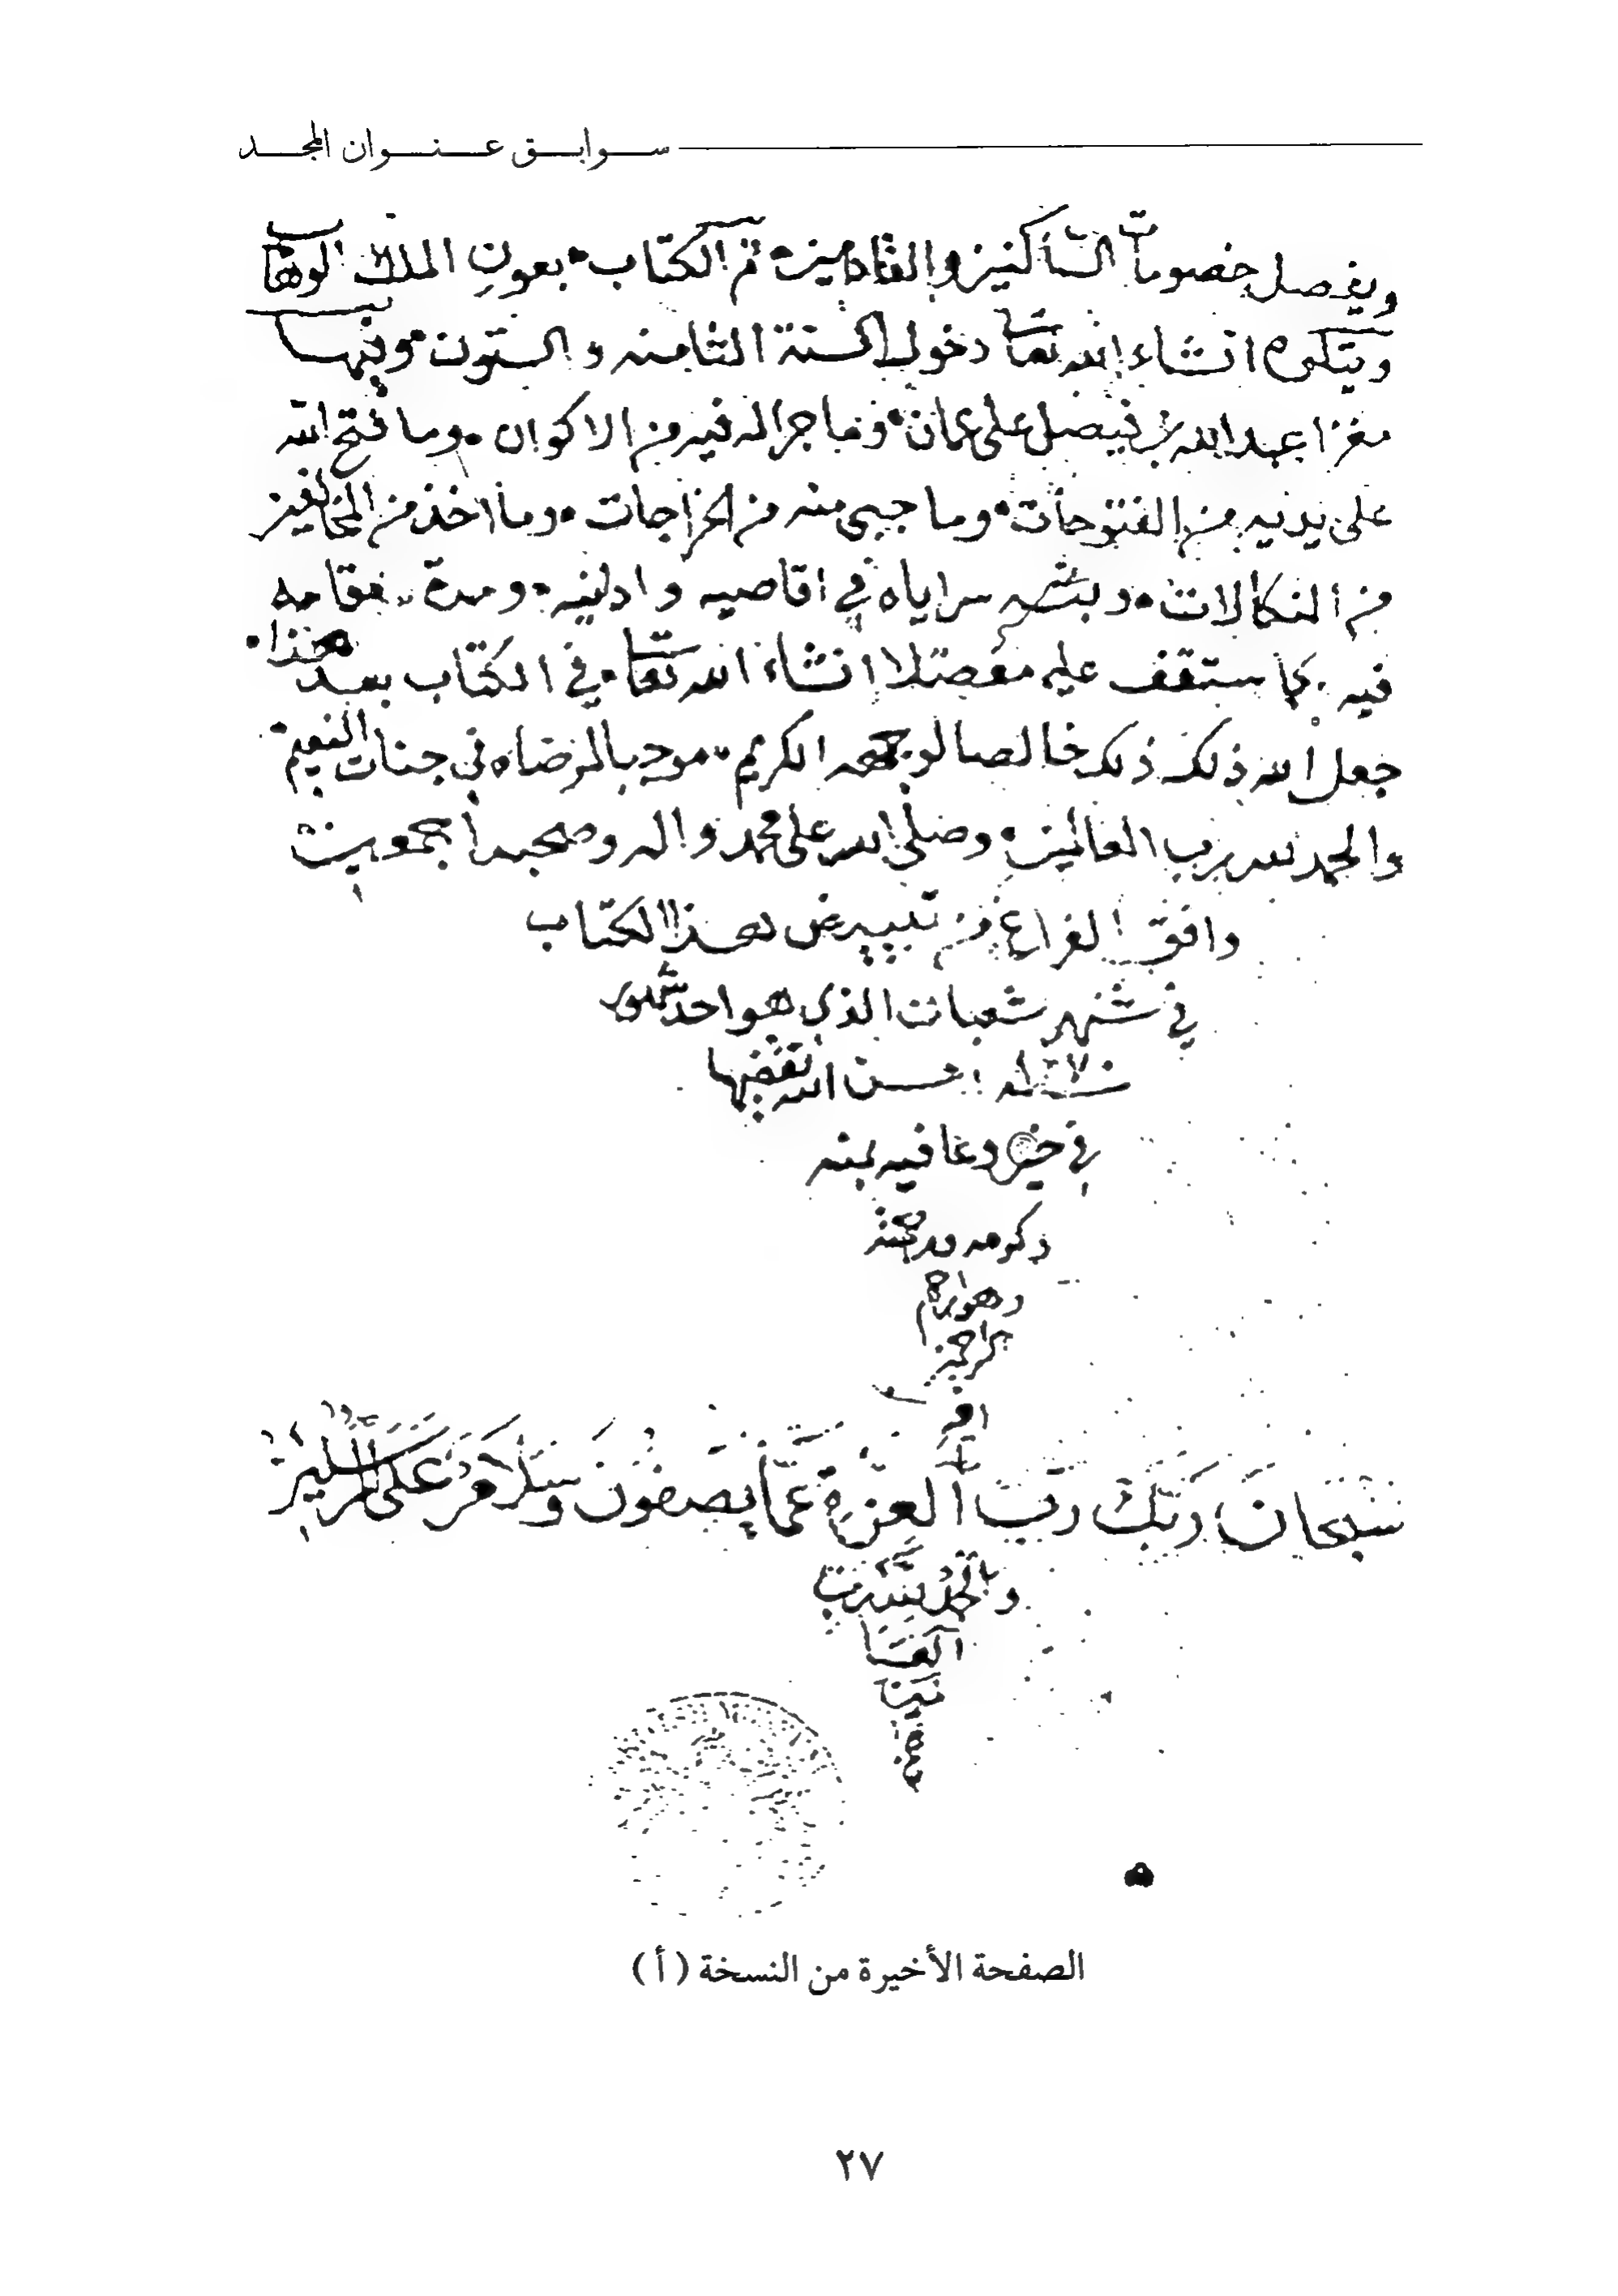 سوابق عنوان المجد
ويفصل خصومات الساكنين والقادمين تم الكتاب بعون الملك الوهاب
ويتلوه انشاء الله تعا دخول السنة الثامنه والستون وفيها
مغزا عبدالله بن فيصل على عمان وما جرا له فيه من الاكوان وما فتح الله
على يديه من الفتوحات وما جبي منه من الخراجات وما اخذ من المخالفين
من النكالات وبثه سراياه في اقاصيه وادانيه ومدة مقامه
فيه كما ستقف عليه مفصلا انشاء الله تعا في الكتاب بعد هذا
جعل الله ذلك ذلك خالصا لوجهه الكريم موجبا لرضاه في جنات النعيم
والحمد لله رب العالمين وصلى الله على محمد واله وصحبه اجمعين
وافق الفراغ من تبييض هذا الكتاب
في شهر شعبان الذي هو احد شهور
احسن الله تقضيها
في خير وعافيه بمنه
وكرمه ورحمته
وهو ارحم
الراحمين
امين
سُبْحَانَ رَبِّكَ رَبِّ الْعِزَّةِ عَمَّا يَصِفُونَ وَسَلَامٌ عَلَى الْمُرْسَلِينَ
والحمد لله رب
العا
لمين
الصفحة الأخيرة من النسخة (أ)
٢٧